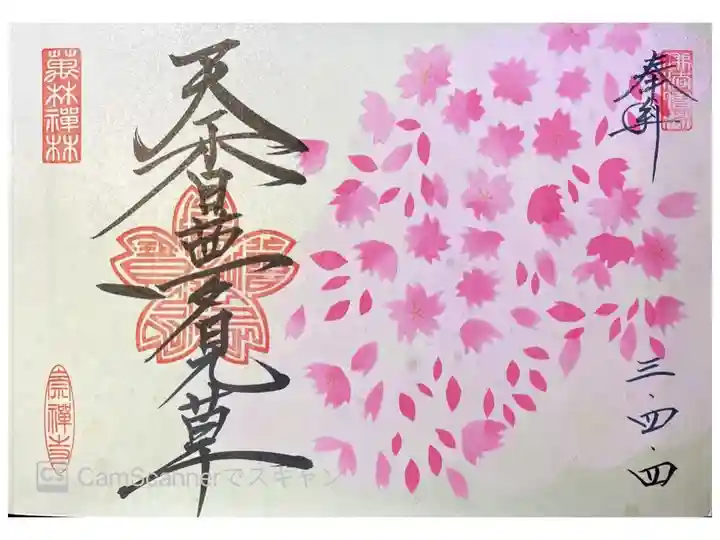 奉拝
三・四・四
天香夢見草
崇禪寺
CS CamScannerでスキャン